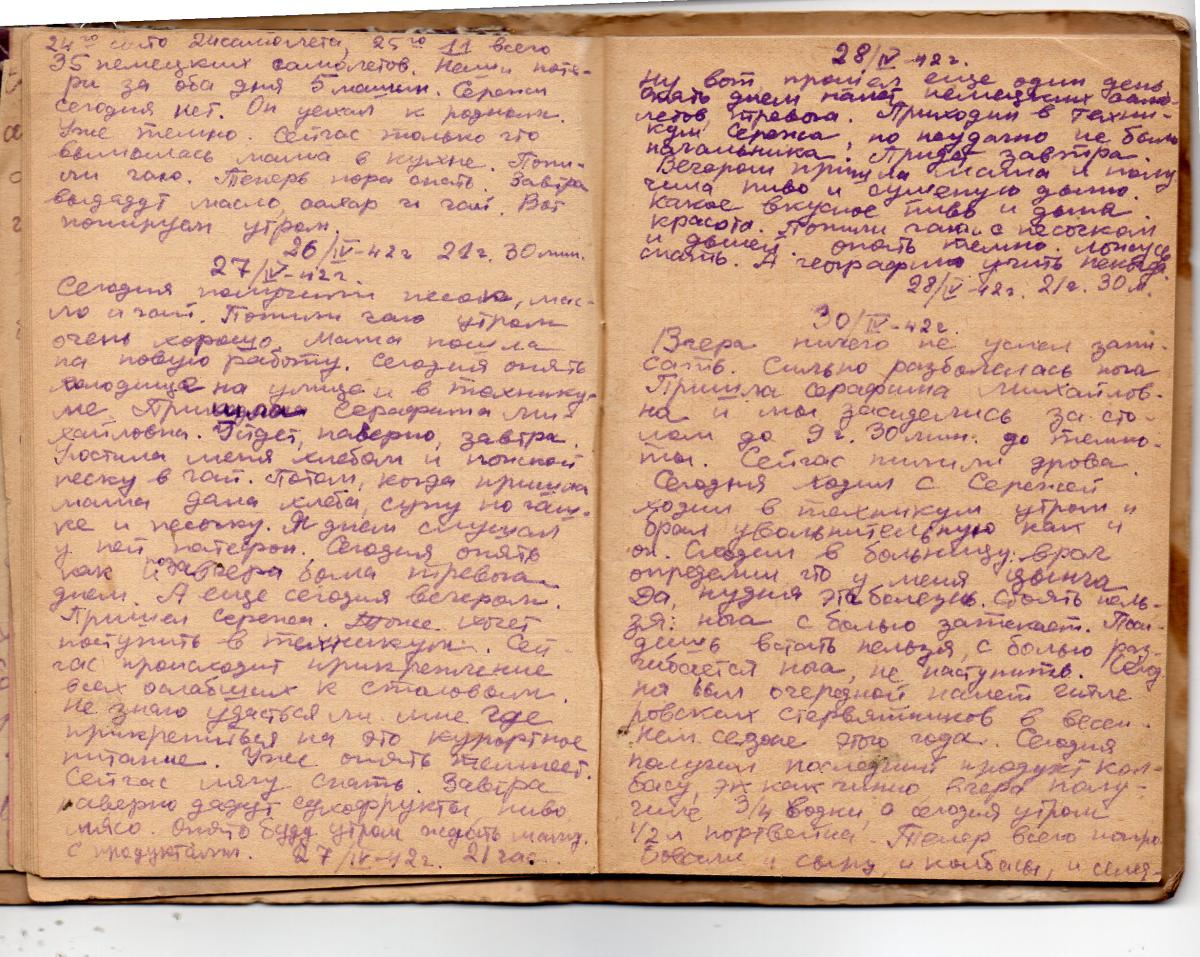 24го сбито 24самолета, 25го 11 всего
35 немецких самолетов. Наши поте-
ри за оба дня 5 машин. Сережи
сегодня нет. Он уехал к родным.
Уже темно. Сейчас только что
вымылась мама в кухне. Попи-
ли чаю. Теперь пора спать. Завтра
выдадут масло, сахар и чай. Вот
попируем утром.
26/IV-42г 21г. 30мин.
27/IV-42г.
Сегодня получили песок, мас-
ло и чай. Попили чаю утром
очень хорошо. Мама пошла
на новую работу. Сегодня опять
холодище на улице и в технику-
ме. Пришла Серафима Ми-
хайловна. Уйдет, наверно, завтра.
Угостила меня хлебом и
песку в чай. Потом, когда пришла
мама дала хлеба, супу по чаш-
ке и песочку. Я днем слушал
у ней патефон. Сегодня опять
как и завчера была тревога
днем. А еще сегодня вечером.
Пришел Сережа. Тоже хочет
поступить в техникум. Сей-
час происходит прикрепление
всех ослабших к столовым.
Не знаю удасться ли мне где
прикрепиться на это курортное
питание. Уже опять темнеет.
Сейчас лягу спать. Завтра
наверно дадут сухофрукты пиво
мясо. Опять буду утром ждать маму
с продуктами. 27/IV-42г. 21час.
28/IV-42г.
Ну вот прошел еще один день
Опять днем налет немецких само-
летов тревога. Приходил в техни-
кум Сережа, но неудачно не было
начальника. Придет завтра.
Вечером пришла мама и полу
чила пиво и сушеную дыню.
Какое вкусное пиво и дыня
красота. Попили чаю с песочком
и дыней. опять темно. ложусь
спать. А географию учить некогда.
28/IV-42г. 21г. 30м.
30/IV-42г.
Вчера ничего не успел запи-
сать. Сильно разболелась нога
Пришла Серафима Михайлов-
на и мы засиделись за сто-
лом до 9г. 30мин. до темно-
ты. Сейчас пилили дрова.
Сегодня ходил с Сережей
ходил в техникум утром и
брал увольнительную как и
он. Сходил в больницу. врач
определил что у меня цынга
Да, нудная эта болезнь. Стоять нель-
зя: нога с болью затекает.
встать нельзя, с болью раз-
гибается нога, не наступить. Сегод
ня был очередной налет гитле
ровских стервятников в весен-
нем сезоне этого года. Сегодня
получил последний продукт кол-
басу, вчера полу-
чили 3/4 водки, а сегодня утром
1/2 л портвейна. Тепер всего попро
бовали и сыру, и колбасы, и селя-